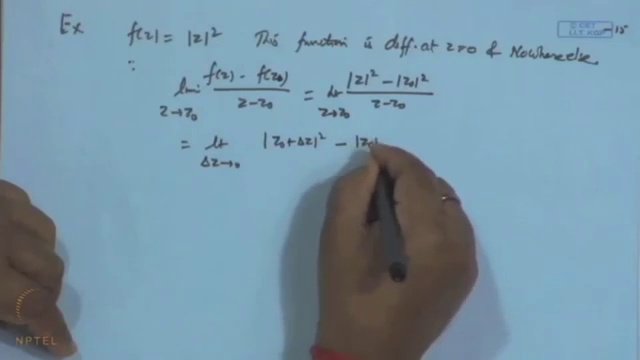 Ex f(z) = |z|² This function is diff. at z=0 & Nowhere else.
∴ lim z→z₀ (f(z) - f(z₀))/(z-z₀) = lt z→z₀ (|z|² - |z₀|²)/(z-z₀)
= lt Δz→0 |z₀+Δz|² - |z₀|
NPTEL